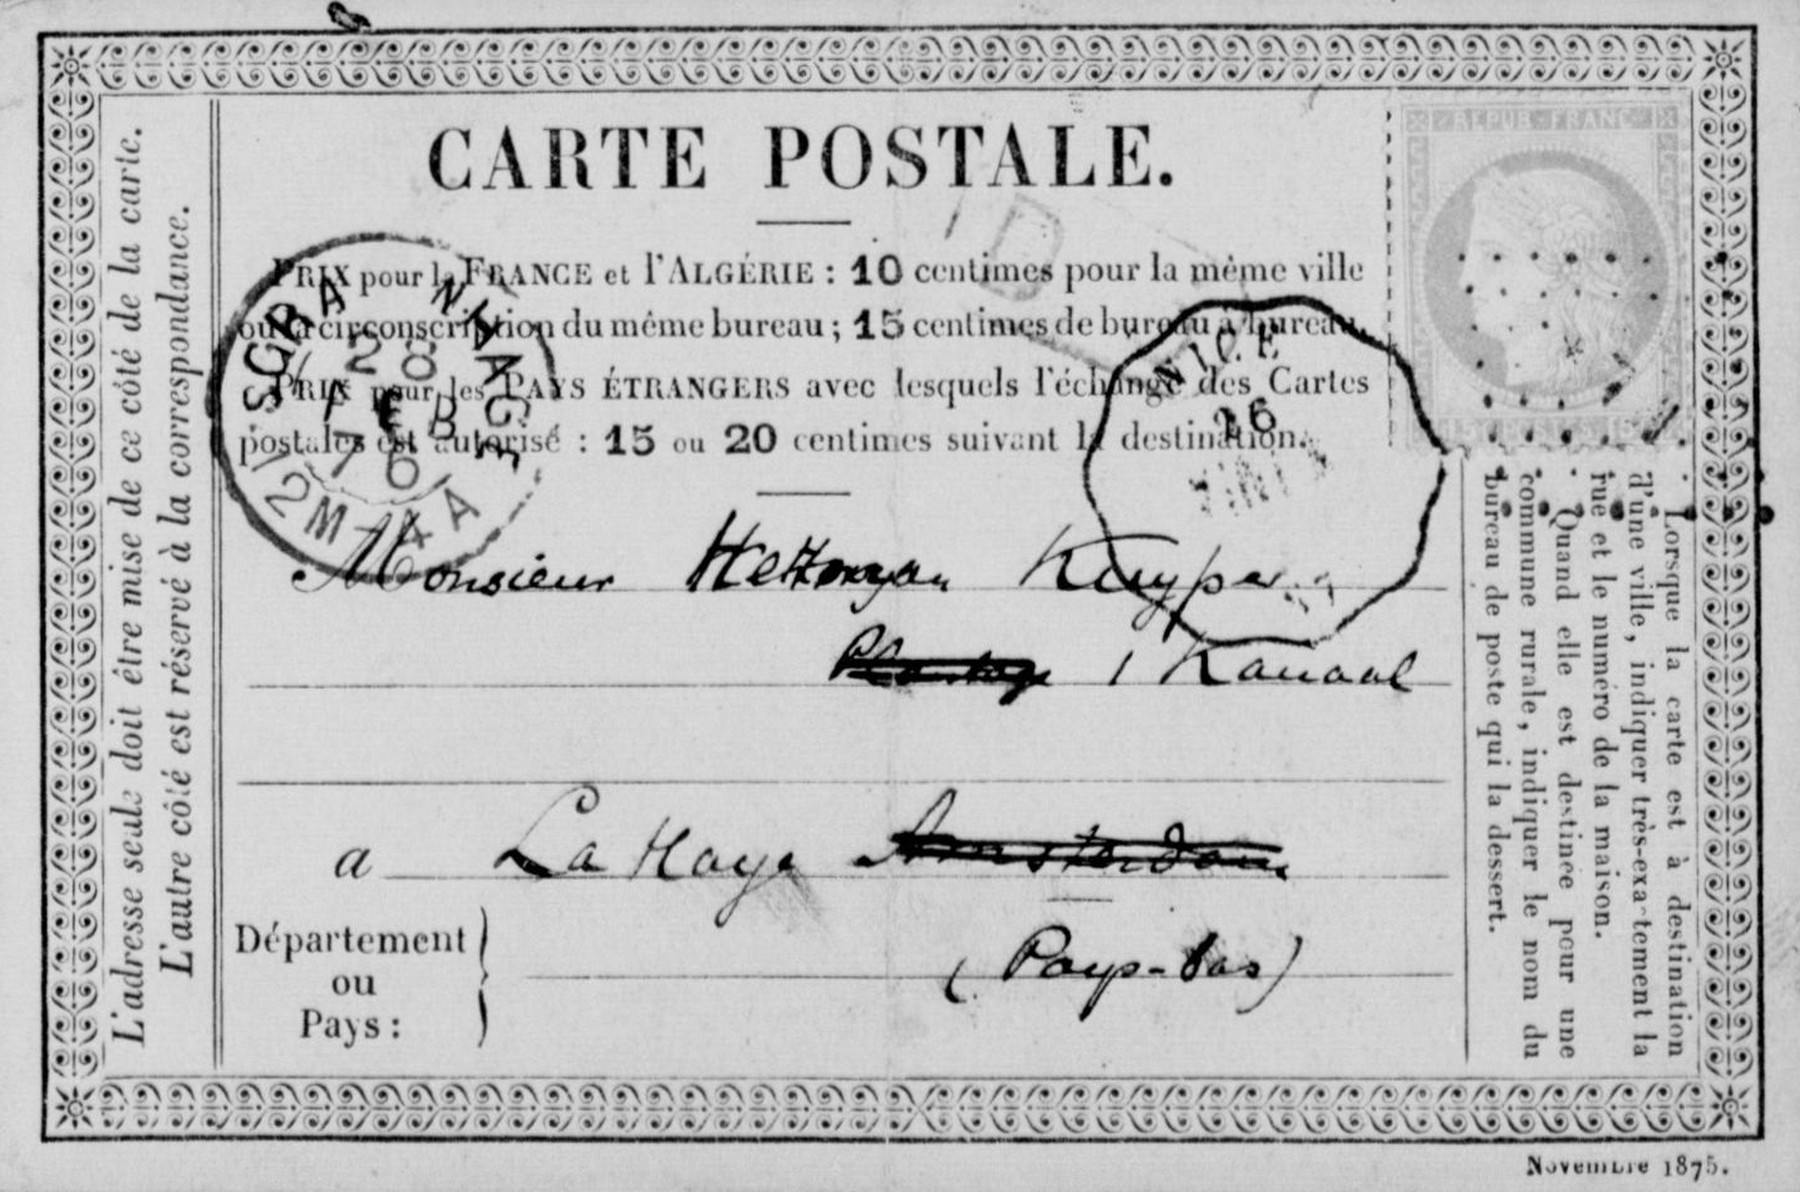 CARTE POSTALE.
PRIX pour la FRANCE et l'ALGÉRIE : 10 centimes pour la même ville
ou la circonscription du même bureau ; 15 centimes de bureau à bureau.
PRIX pour les PAYS ÉTRANGERS avec lesquels l'échange des Cartes
postales est autorisé : 15 ou 20 centimes suivant la destination.
L'adresse seule doit être mise de ce côté de la carte.
L'autre côté est réservé à la correspondance.
REPUB · FRANC
'SGRAVENHAGE
28
FEB
76
12M-4A
NICE
26
Monsieur Kuyper
1 Kanaal
a La Haye Amsterdam
Département
ou
Pays :
(Pays-bas)
Lorsque la carte est à destination
d'une ville, indiquer très-exactement la
rue et le numéro de la maison.
Quand elle est destinée pour une
commune rurale, indiquer le nom du
bureau de poste qui la dessert.
Novembre 1875.